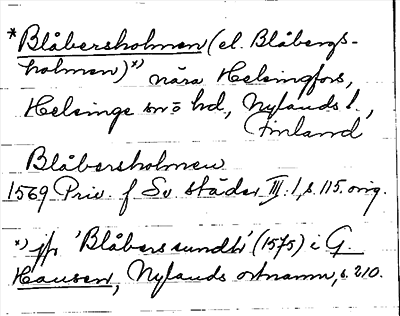 *Blåbersholmen (el. Blåbergs-
holmen)*) nära Helsingfors,
Helsinge sn o hd, Nylands l.,
Finland
Blåbersholmen
1569 Priv. f Sv städer III:1, s. 115. orig.
*) jfr 'Blåbers sundh' (1575) i G.
Hausen, Nylands ortnamn, s. 210.